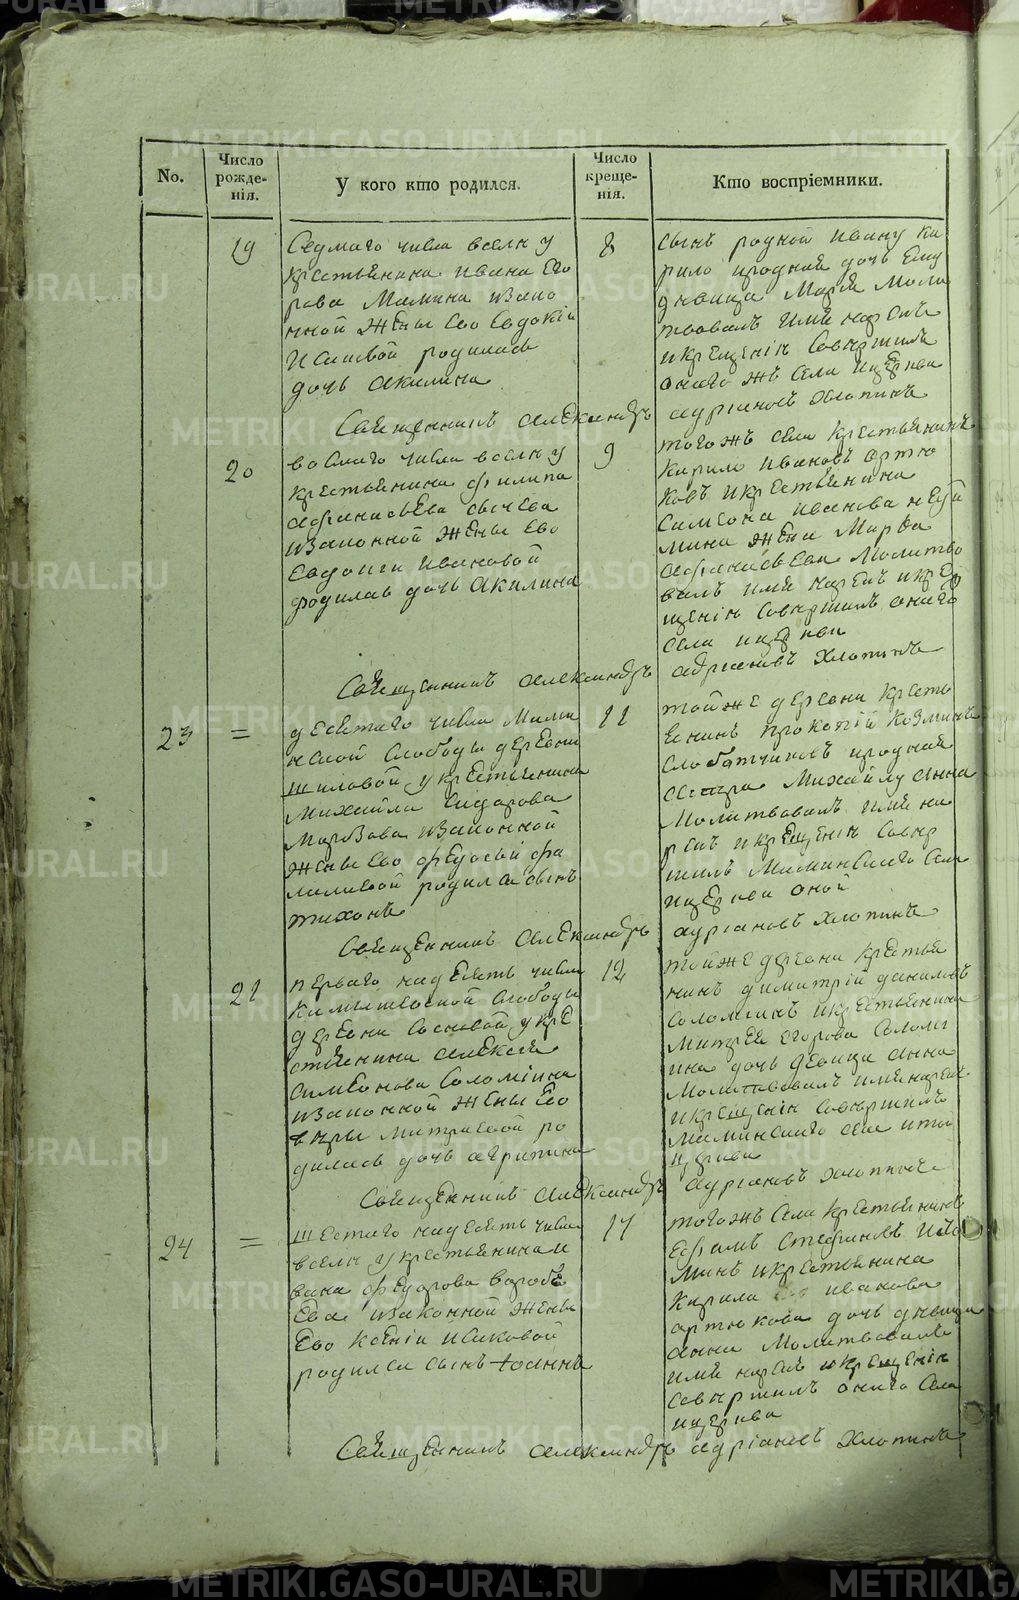 No.
Число рожде-нія.
У кого кто родился.
Число креще-нія.
Кто воспріемники.
19
Седмаго числа вселѣ у
крестьянина Ивана Его
рова Мамина изако
нной жены Ево Евдокіи
Исаковой родилась
дочь Акилина
8
сынъ родной Ивану Ки
рило иродная дочь Ему
дѣвица Марія Моли
твовалъ Имя нарекъ
икрещеніи Совершилъ
онаго жъ Села ицеркви
Священникъ Александръ Адріановъ Хлопинъ
20
восмаго числа вселѣ у
крестьянина Филипа
Афанасьева Сычева
изаконной жены Ево
Евдокіи Ивановой
родилас дочь Акилина
9
тогожъ села крестьянинъ
Кирило Ивановъ Артю
ковъ икрестьянина
Симеона Иванова
мина жена Марѳа
Афанасьева Молитво
валъ имя нарекъ икре
щеніи Совершилъ онаго
села ицеркви
Священникъ Александръ Адріановъ Хлопинъ
23
=
десятаго числа Мами
нской Слободы деревни
Шиловой укрестьянина
Михайла Сидорова
Морозова изаконной
жены Ево Федосьи фа
лилѣевой родился сынъ
тихонъ
11
тойже деревни кресть
янинъ Прокопій Козминъ
Слободчиковъ иродная
сестра Михайлу Анна
Молитвовалъ Имя на
рекъ икрещеніи Совер
шилъ Маминскаго Села
ицеркви оной
Священникъ Александръ Адріановъ Хлопинъ
21
перваго надесять числа
Камышевской Слободы
деревни Сосновой укре
стьянина Алексея
Симеонова Соломіина
изаконной жены Ево
вѣры Митріевой ро
дилась дочь Агрипина
12
тойже деревни крестья
нинъ Димитрій Даниловъ
Соломѣинъ икрестьянина
Митрея Егорова Соломѣ
ина дочь Девица Анна
Молитвовалъ имя нарекъ
икрещеніи Совершилъ
Маминскаго села итой
церкви
Священникъ Александръ Адріановъ Хлопинъ
24
=
шестаго надесять числа
вселѣ укрестьянина И
вана Федорова Воробь
Ева изаконной жены
Ево Ксеніи Исаковой
родился сынъ Іоаннъ
17
тогожъ Села крестьянинъ
Ефимъ Стефановъ
минъ икрестьянина
Кирила Иванова
Артюкова дочь дѣвица
Анна Молитвовалъ
имя нарекъ икрещеніи
Совершилъ онаго Села
ицеркви
Священникъ Александръ Адріановъ Хлопинъ
METRIKI.GASO-URAL.RU